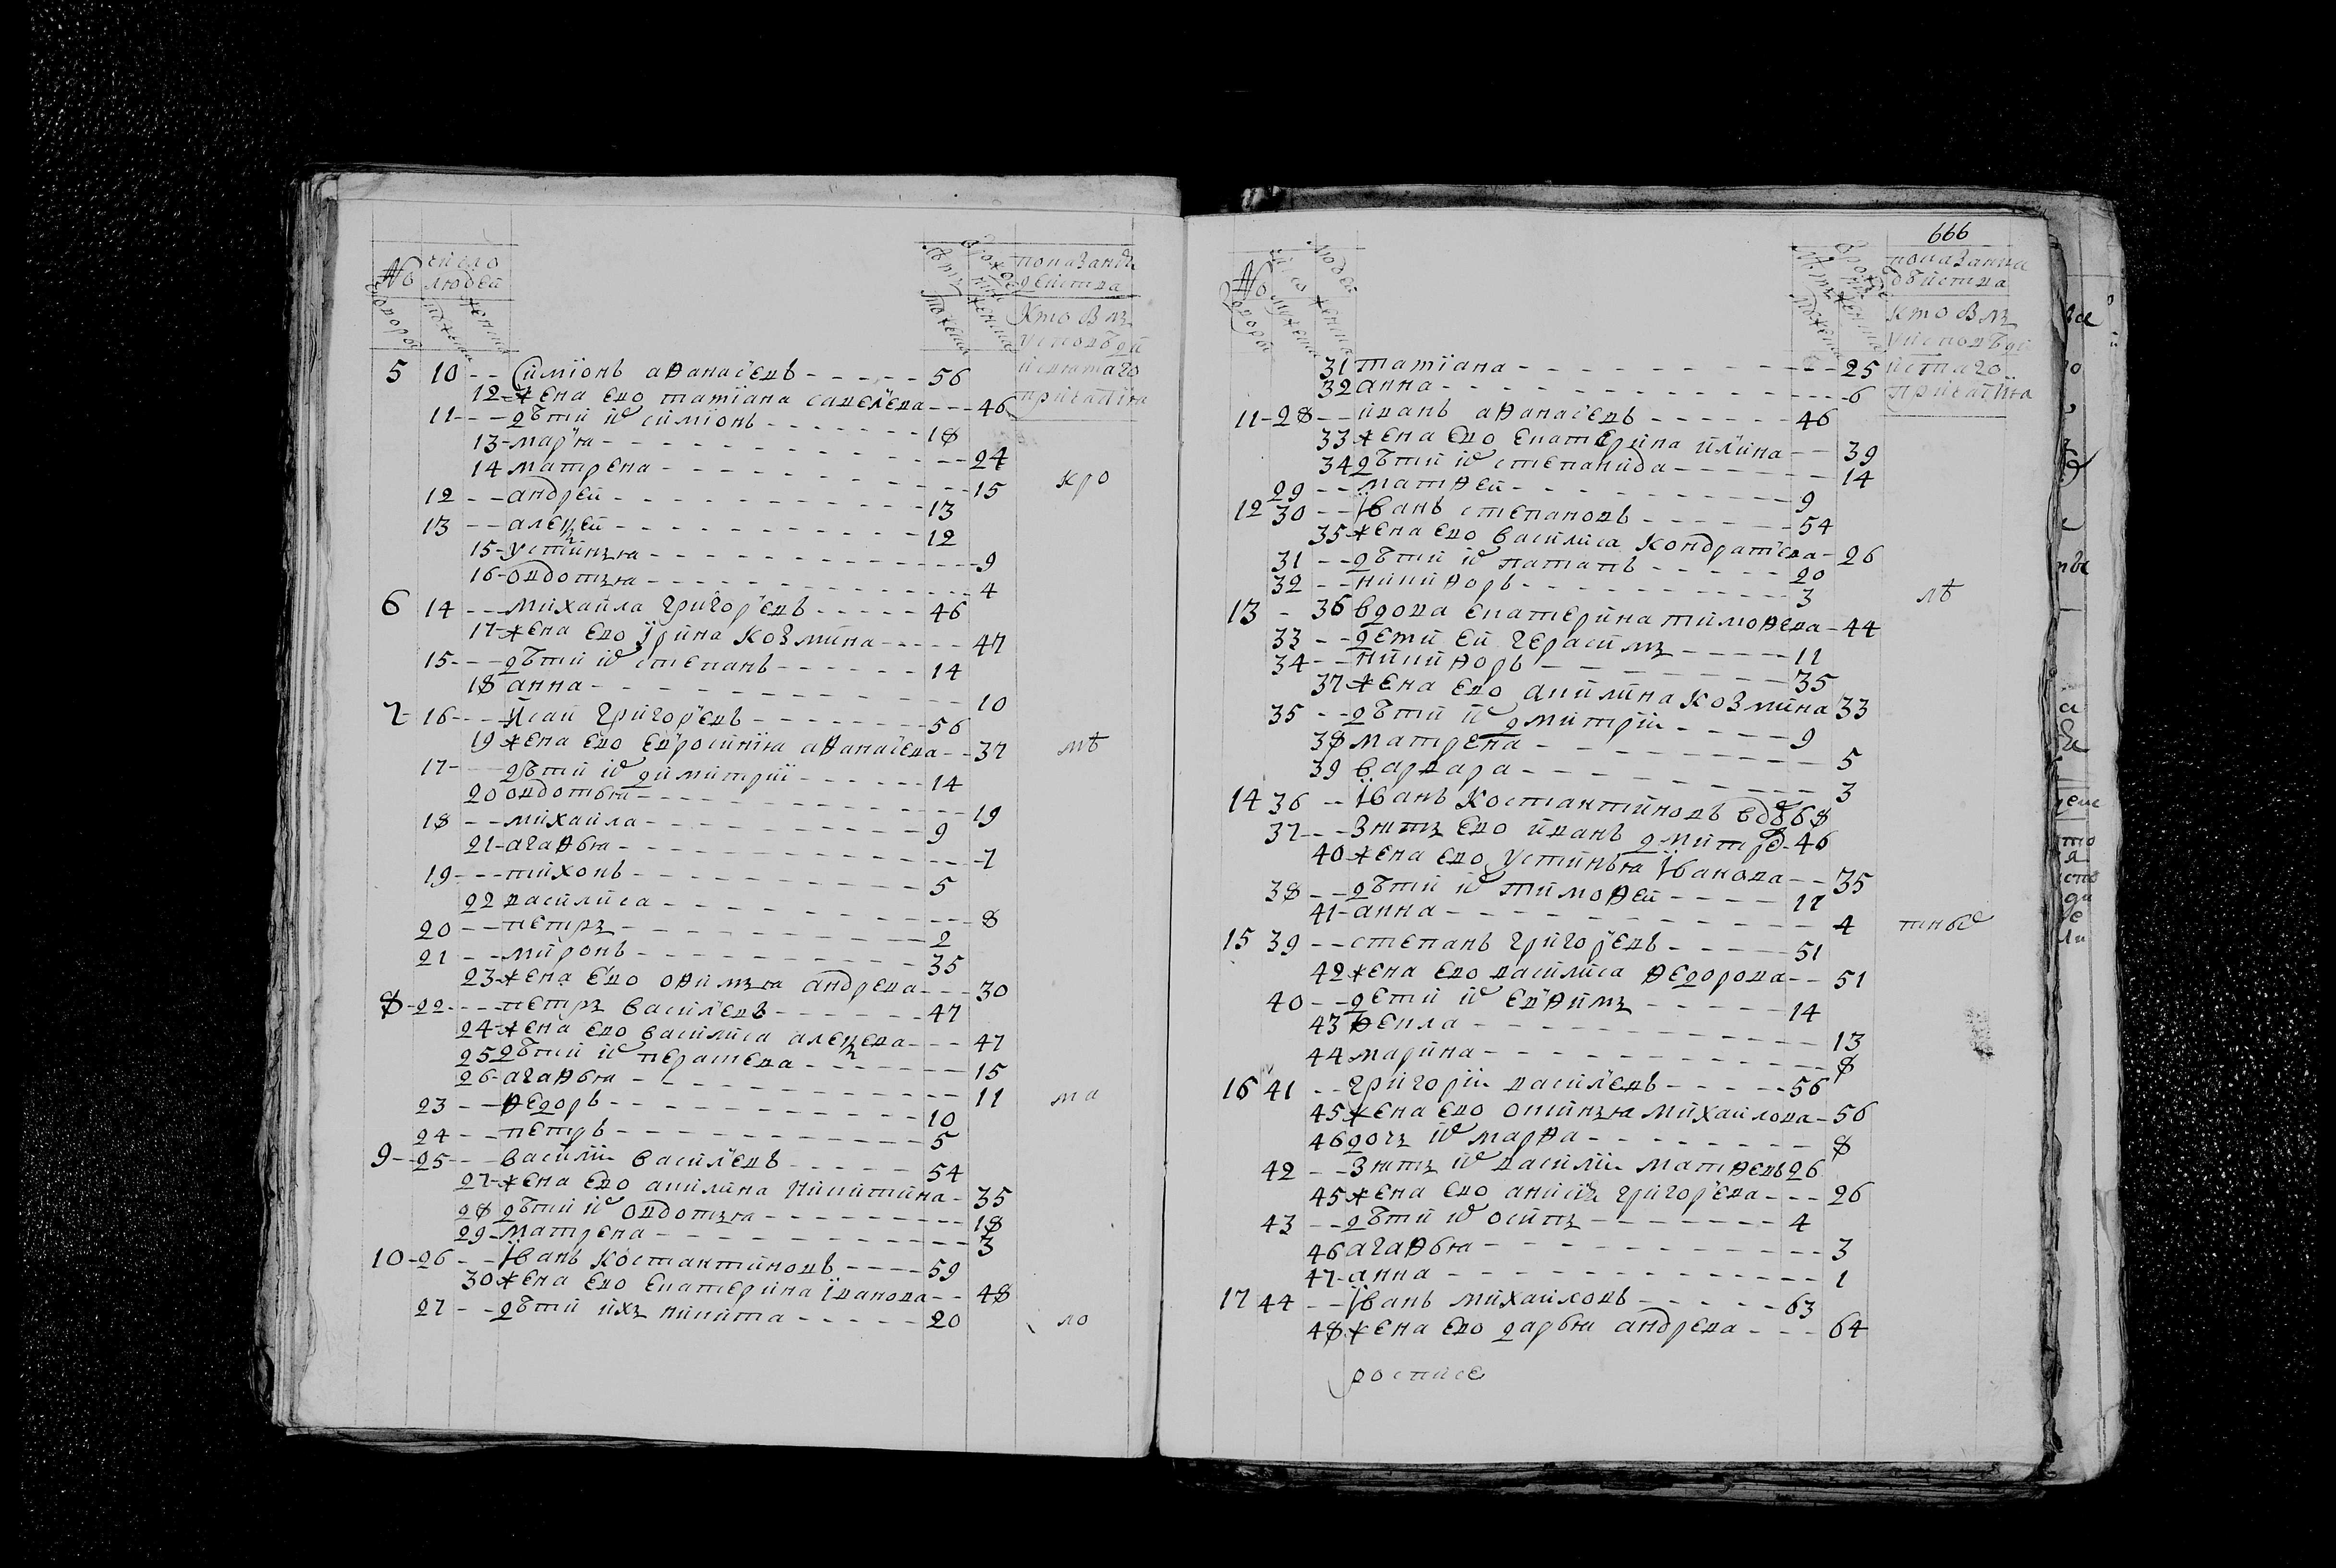 № число людей
дворов мужеска женска
лѣтъ о рождении мужеска женска
показание действа
кто былъ у исповѣди и святаго причастия
5 10 -- Симионъ аѳанасьевъ 56
12 жена ево татиана савельева 46
11 -- дѣти их симионъ 18
13 марья 24
14 матрена 15 кро
12 -- андрей 13
13 -- алеѯей 12
15 устинья 9
16 овдотья 4
6 14 -- михайла григорьевъ 46
17 жена ево ирина козмина 47
15 -- дѣти их степанъ 14
18 анна 10
7 16 -- исай григорьевъ 56
19 жена ево евросиния аѳанасьева 37 мѣ
17 -- дѣти их димитрий 14
20 овдотья 19
18 -- михайла 9
21 агаѳья 7
19 -- тихонъ 5
22 василиса 8
20 -- петръ 2
21 -- миронъ 35
23 жена ево оѳимья андрева 30
8 22 -- петръ васильевъ 47
24 жена ево василиса алеѯева 47
25 дѣти их
15
26 агаѳья 11 ма
23 -- ѳедоръ 10
24 -- петръ 5
9 25 -- василий васильевъ 54
27 жена ево акилина никитина 35
28 дѣти их овдотья 18
29 матрена 3
10 26 -- иванъ костантиновъ 59
30 жена ево екатерина иванова 48
27 -- дѣти ихъ никита 20 ло
666
№ число людей
дворов мужеска женска
лѣтъ о рождении мужеска женска
показания дѣйства
кто былъ у исповѣди и стаго причастия
31 татиана 25
32 анна 6
11 28 -- иванъ аѳанасьевъ 46
33 жена ево екатерина ильина 39
34 дѣти их степанида 14
29 -- матѳей 9
12 30 -- иванъ степановъ 54
35 жена ево василиса кондратьева 26
31 -- дѣти их патапъ 20
32 -- никиѳоръ 3 лѣ
13 - 36 вдова екатерина тимоѳева 44
33 -- дети ей герасимъ 11
34 -- никиѳоръ 35
37 жена ево акилина козмина 33
35 -- дѣти их дмитрий 9
38 матрена 5
39 варвара 3
14 36 -- иванъ костантиновъ вдов 68
37 -- зять ево иванъ дмитрев 46
40 жена ево устинья иванова 35
38 -- дѣти их тимоѳей 17
41 анна 4 тньев
15 39 -- степанъ григорьевъ 51
42 жена ево василиса ѳедорова 51
40 -- дети их евѳимъ 14
43 ѳекла 13
44 марина 8
16 41 -- григорий василевъ 56
45 жена ево оксинья михайлова 56
46 дочь их марѳа 8
42 -- зять их василий матѳевъ 26
45 жена ево анисия григорьева 26
43 -- дѣти их осипъ 4
46 агаѳья 3
47 анна 1
17 44 -- иванъ михайловъ 63
48 жена ево дарья андрева 64
росписе